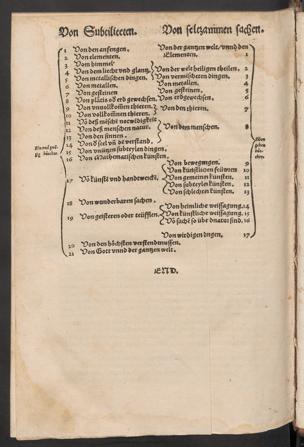 Von Subtiliteten. Von seltzammen sachen.
1 Von den anfengen, Von der gantzen welt, vnnd den
2 Von elementen, Elementen, 1
3 Von himmel
4 Von dem liecht vnd glantz, Von der welt heiligen theilen, 2
5 Von metallischen dingen, Von vermischeten dingen, 3
6 Von metallen, Von metallen, 4
7 Von gesteinen Von gesteinen, 5
8 Von erd gewechsen, Von erdgewechsen, 6
9 Von vnuolkom̃en thieren,
10 Von vollkom̃nen thieren, Von den thieren, 7
11 Võ deß mẽschẽ
12 Von deß menschen natur, Von dem menschen, 8
13 Von den sinnen,
14 Von d̓ seel vñ de verstand,
15 Von vnnützen subtylen dingen,
16 Von Mathematischen künsten,
Von bewegungen, 9
Von künstlichen feüwren 10
17 Võ künstẽ vnd handwerckẽ, Von gemeinen künsten, 11
Von subtylen künsten, 12
Von schlechten künsten, 13
18 Von wunderbaren sachen,
Von heimliche weissagung, 14
19 Von geisteren oder teüfflen, Von künstliche weissagung, 15
Võ sachẽ so übe dnatur sind, 16
Von wirdigen dingen, 17
20 Von den höchsten verstendtnussen,
21 Von Gott vnnd der gantzen welt.
END.